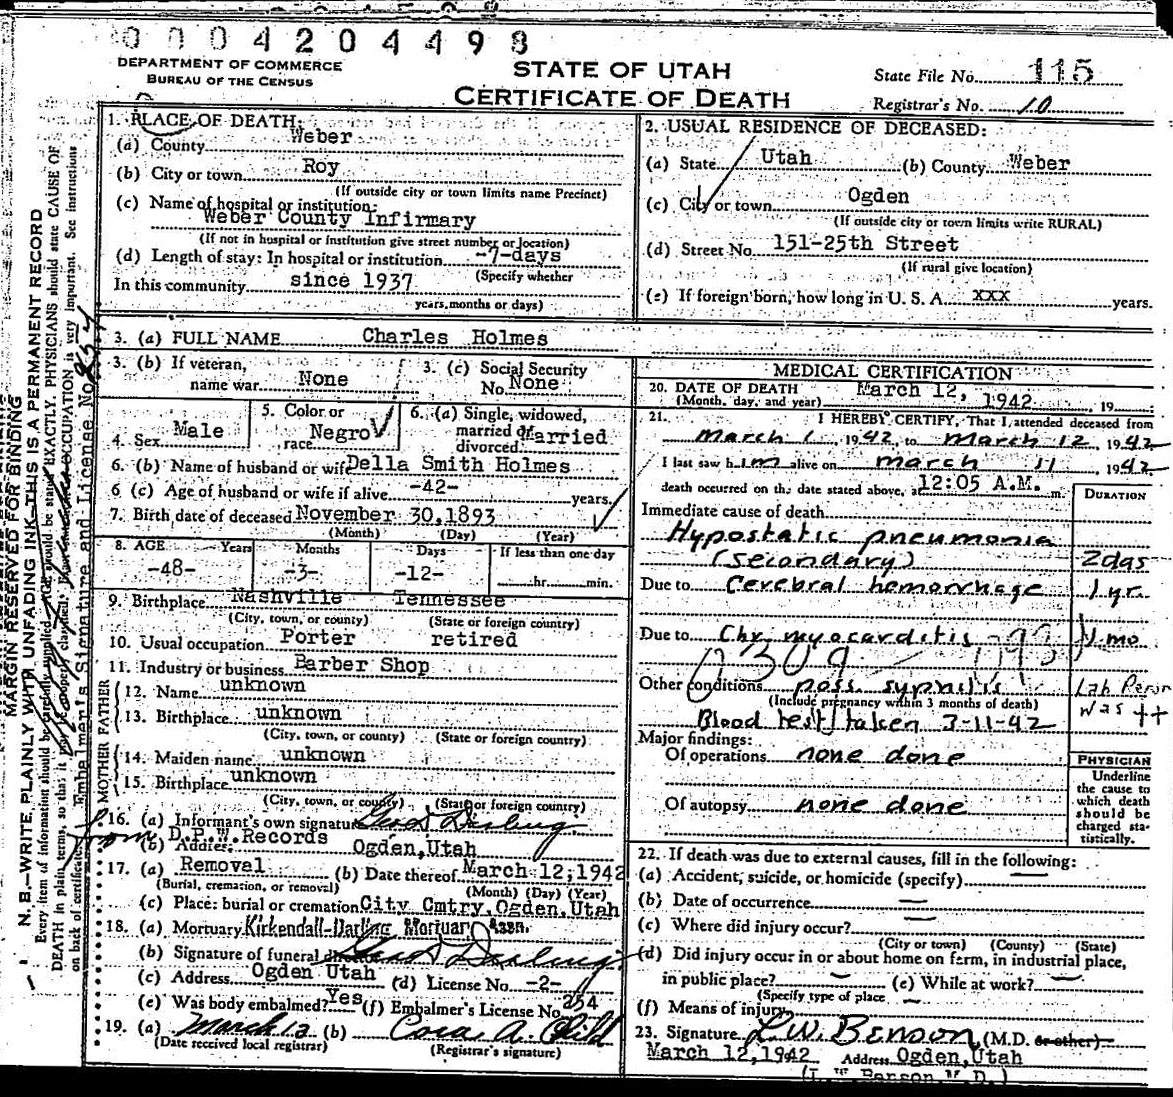 0004204498
DEPARTMENT OF COMMERCE
BUREAU OF THE CENSUS
STATE OF UTAH
CERTIFICATE OF DEATH
State File No. 115
Registrar's No. 10
1. PLACE OF DEATH:
(a) County Weber
(b) City or town Roy
(If outside city or town limits name Precinct)
(c) Name of hospital or institution:
Weber County Infirmary
(If not in hospital or institution give street number or location)
(d) Length of stay: In hospital or institution -7-days
(Specify whether
In this community since 1937
years, months or days)
2. USUAL RESIDENCE OF DECEASED:
(a) State Utah (b) County Weber
(c) City or town Ogden
(If outside city or town limits write RURAL)
(d) Street No. 151-25th Street
(If rural give location)
(e) If foreign born, how long in U. S. A. xxx years.
3. (a) FULL NAME Charles Holmes
3. (b) If veteran, name war None
3. (c) Social Security No. None
4. Sex Male
5. Color or race Negro
6. (a) Single, widowed, married or divorced Married
6. (b) Name of husband or wife Della Smith Holmes
6 (c) Age of husband or wife if alive -42- years.
7. Birth date of deceased November 30, 1893
(Month) (Day) (Year)
8. AGE Years Months Days If less than one day
-48- -3- -12- hr. min.
9. Birthplace Nashville Tennessee
(City, town, or county) (State or foreign country)
10. Usual occupation Porter retired
11. Industry or business Barber Shop
FATHER
12. Name unknown
13. Birthplace unknown
(City, town, or county) (State or foreign country)
MOTHER
14. Maiden name unknown
15. Birthplace unknown
(City, town, or county) (State or foreign country)
16. (a) Informant's own signature Geo D Darling
from D.P.W. Records
(b) Address Ogden, Utah
17. (a) Removal (b) Date thereof March 12, 1942
(Burial, cremation, or removal) (Month) (Day) (Year)
(c) Place: burial or cremation City Cmtry. Ogden, Utah
18. (a) Mortuary Kirkendall-Darling Mortuary Assn.
(b) Signature of funeral director Geo D Darling
(c) Address Ogden Utah (d) License No. -2-
(e) Was body embalmed? Yes (f) Embalmer's License No. 254
19. (a) March 12 (b) Cora A. Child
(Date received local registrar) (Registrar's signature)
MEDICAL CERTIFICATION
20. DATE OF DEATH March 12, 1942, 19
(Month, day, and year)
21. I HEREBY CERTIFY, That I attended deceased from
March 1, 1942, to March 12, 1942
I last saw him alive on March 11, 1942
death occurred on the date stated above, at 12:05 A.M. m.
DURATION
Immediate cause of death
Hypostatic pneumonia
(secondary) 2 das
Due to Cerebral hemorrhage 1 yr.
Due to Chr. myocarditis
Other conditions poss. syphilis
(Include pregnancy within 3 months of death)
Blood test taken 3-11-42
Was ++
Major findings:
Of operations none done
Of autopsy none done
PHYSICIAN
Underline
the cause to
which death
should be
charged sta-
tistically.
22. If death was due to external causes, fill in the following:
(a) Accident, suicide, or homicide (specify)
(b) Date of occurrence
(c) Where did injury occur?
(City or town) (County) (State)
(d) Did injury occur in or about home on farm, in industrial place,
in public place? (e) While at work?
(Specify type of place
(f) Means of injury
23. Signature L. W. Benson (M.D. or other)
March 12, 1942 Address Ogden, Utah
(L. W. Benson, M.D.)
MARGIN RESERVED FOR BINDING
N. B.—WRITE PLAINLY WITH UNFADING INK—THIS IS A PERMANENT RECORD
Embalmer's Signature and License No. 254